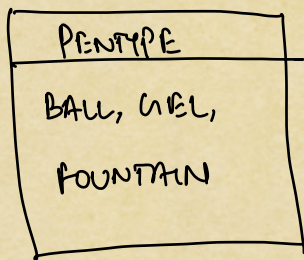 PENTYPE
BALL, GEL,
FOUNTAIN